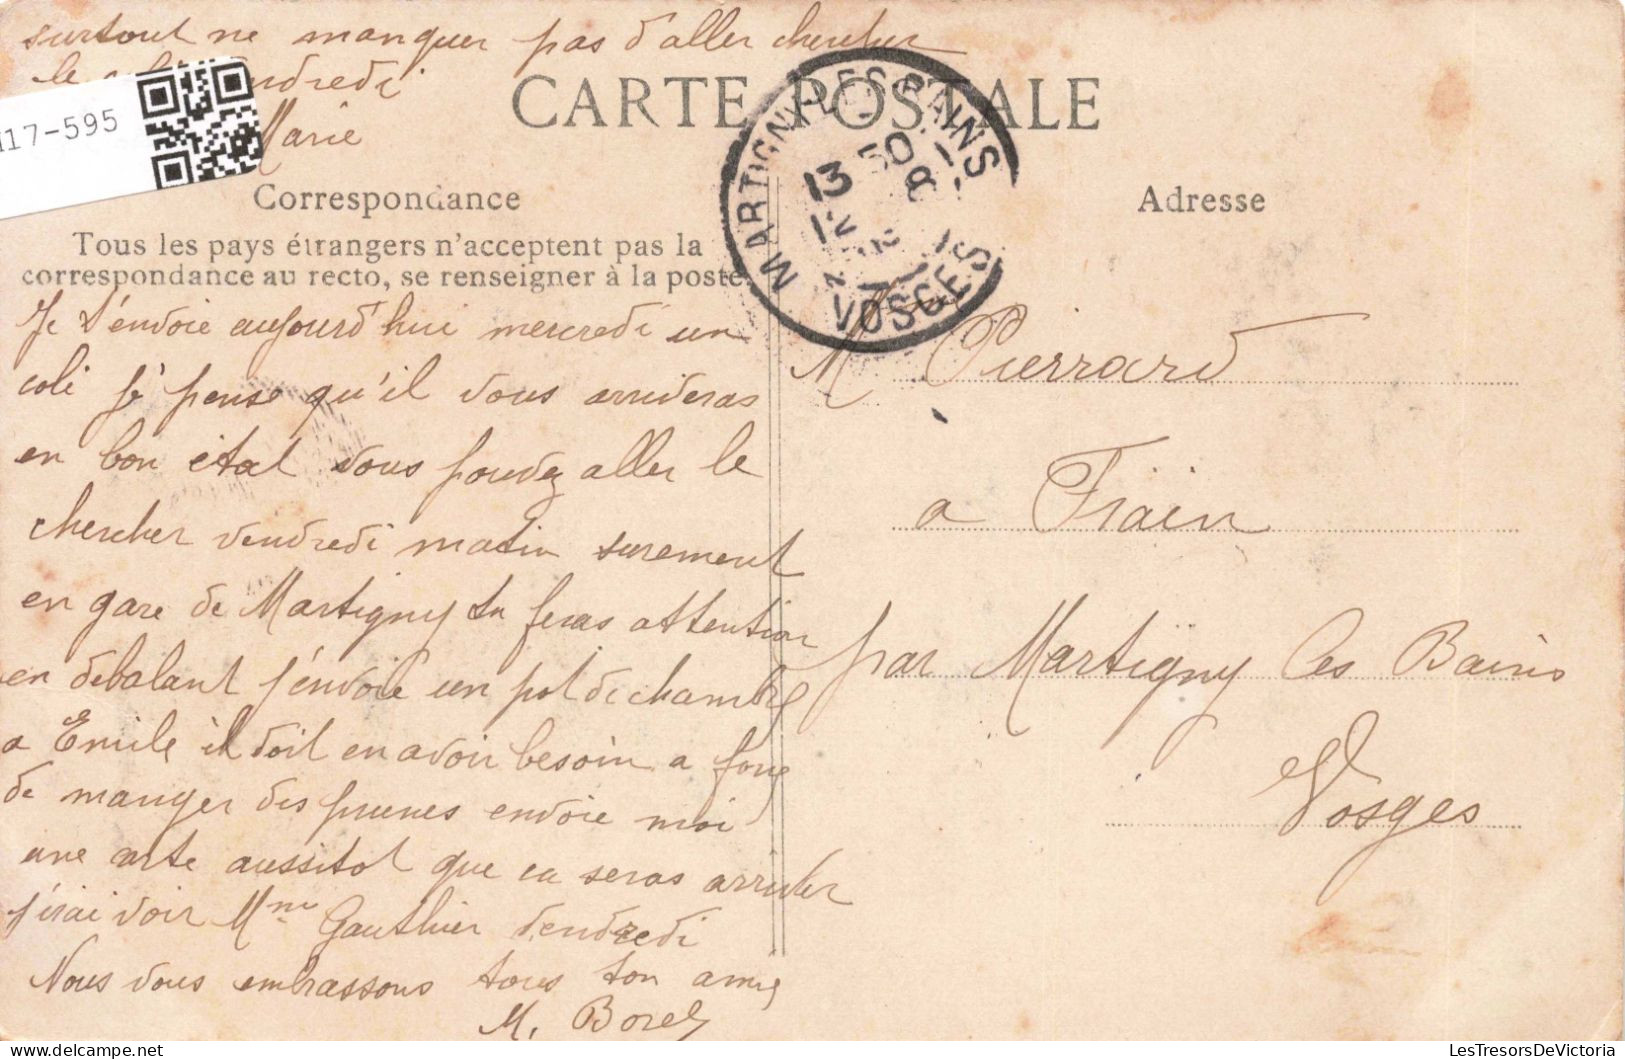 surtout ne manquer pas d'aller chercher
le vendredi
Marie
117-595
CARTE POSTALE
MARTIGNY-LES-BAINS
13
VOSGES
Correspondance
Adresse
Tous les pays étrangers n'acceptent pas la
correspondance au recto, se renseigner à la poste.
Je t'envoie aujourd'hui mercredi un
coli je pense qu'il vous arriveras
en bon etat vous pouvez aller le
chercher vendredi matin surement
en gare de Martigny tu feras attention
en débalant j'envoie un pot de chambre
a Emile il doit en avoir besoin a force
de manger des prunes envoie moi
une carte aussitot que ca seras arriver
j'irai voir Mme Gauthier vendredi
Nous vous embrassons tous ton amie
M. Borel
Pierrard
a Frain
par Martigny les Bains
Vosges
LesTresorsDeVictoria.com